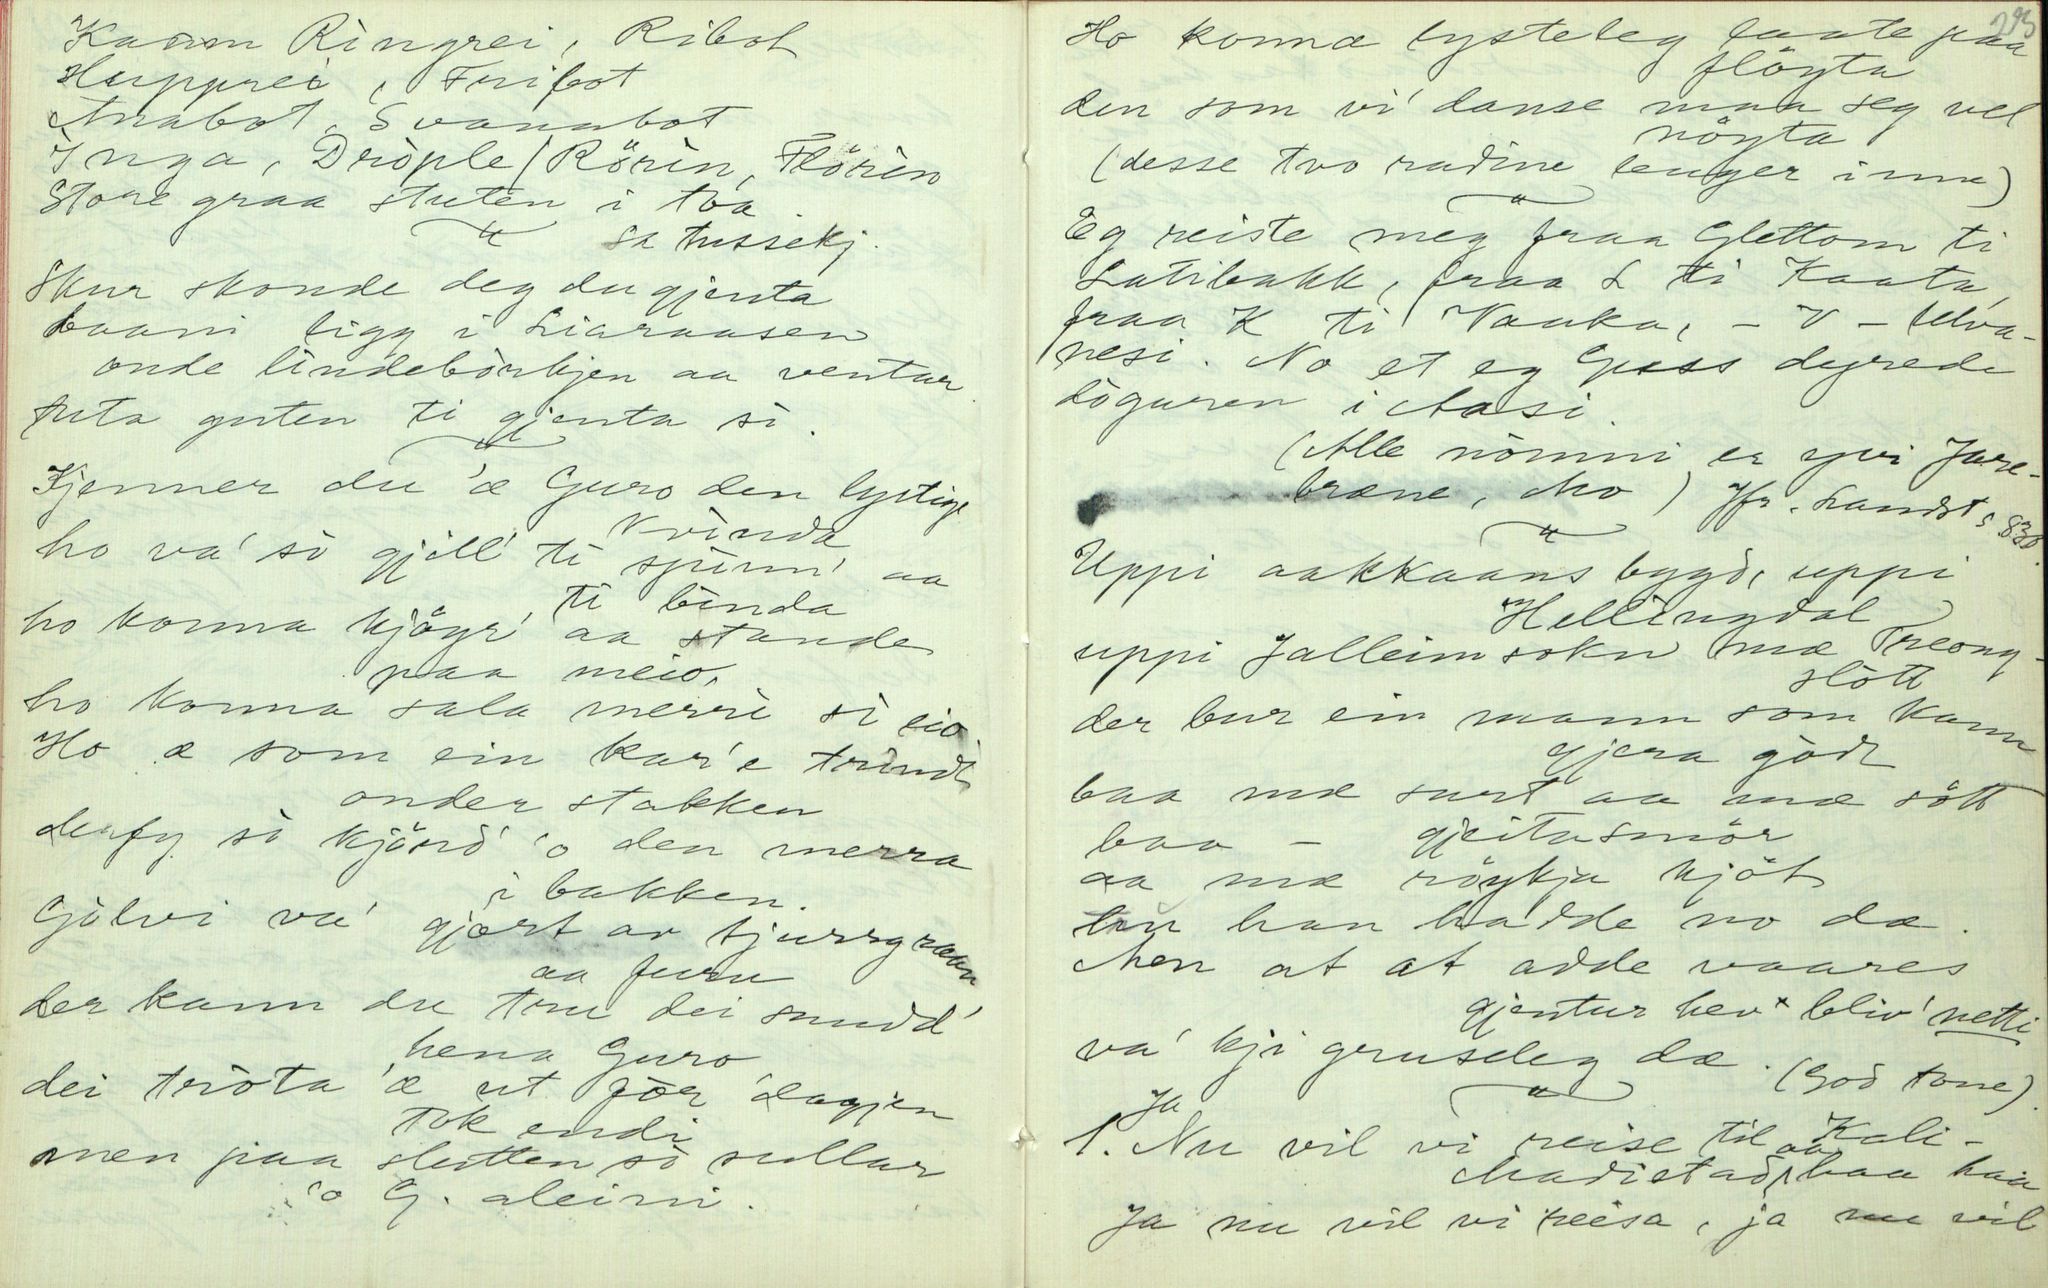 Kaam Ringrei, Ribot
Hupprei, Fribot
Anabot, Svanabot
Inga, Dròple (Rörin, Flörin
Store graa stuten i toa.
sa tussekj.
Skur skonde deg du gjenta
baani ligg i Liaraasen
onde lindebörkjen aa ventar
tuta guten ti gjenta si.
Kjenner du 'æ Guro den lystige
kvinda
ho va' so gjill' ti spinn' aa
ti binda
ho konna kjöyr' aa stande
paa meio,
ho konna sala merri si eio
Ho æ som ein kar'e trindt
onder stakken
derfy so kjörd' 'o den merra
i bakken.
Gòlvi va' gjort av tjurrgraan
aa furu
der kann du tru dei snudd'
hena Guro
dei tròta 'æ ut för dagjen
tok endi
men paa slutten so sullar
'o G. aleini.
295
Ho konna lysteleg laate paa
flöyta
den som vi' danse maa seg vel
nöyta
(desse tvo radine lenger inne)
Eg reiste meg fraa Glettom ti
Latibakk, fraa L ti Kaata,
fraa K ti Vauka, - V - Ulva-
nesi. No et eg Guss dyrede
döguren i Aasi.
(Alle nömni er yvi Jare-
bræne, Mo) Jfr. Landst s 830.
Uppi aakkaans bygd, uppi
Hellingdal
uppi Jalleim sokn mæ Treong-
slött
der bur ein mann som kann
gjera godt
baa mæ surt aa mæ sött
baa - gjeitasmör
aa mæ röykja kjöt
han hadde no dæ.
Men at at adde vaares
gjentur hev x bliv' netti
va' kji gruseleg dæ. (God tone).
Ja
1. Nu vil vi reise til Kali-
Madistad, aa baa haa
Ja nu vil vi reisa, ja nu vil